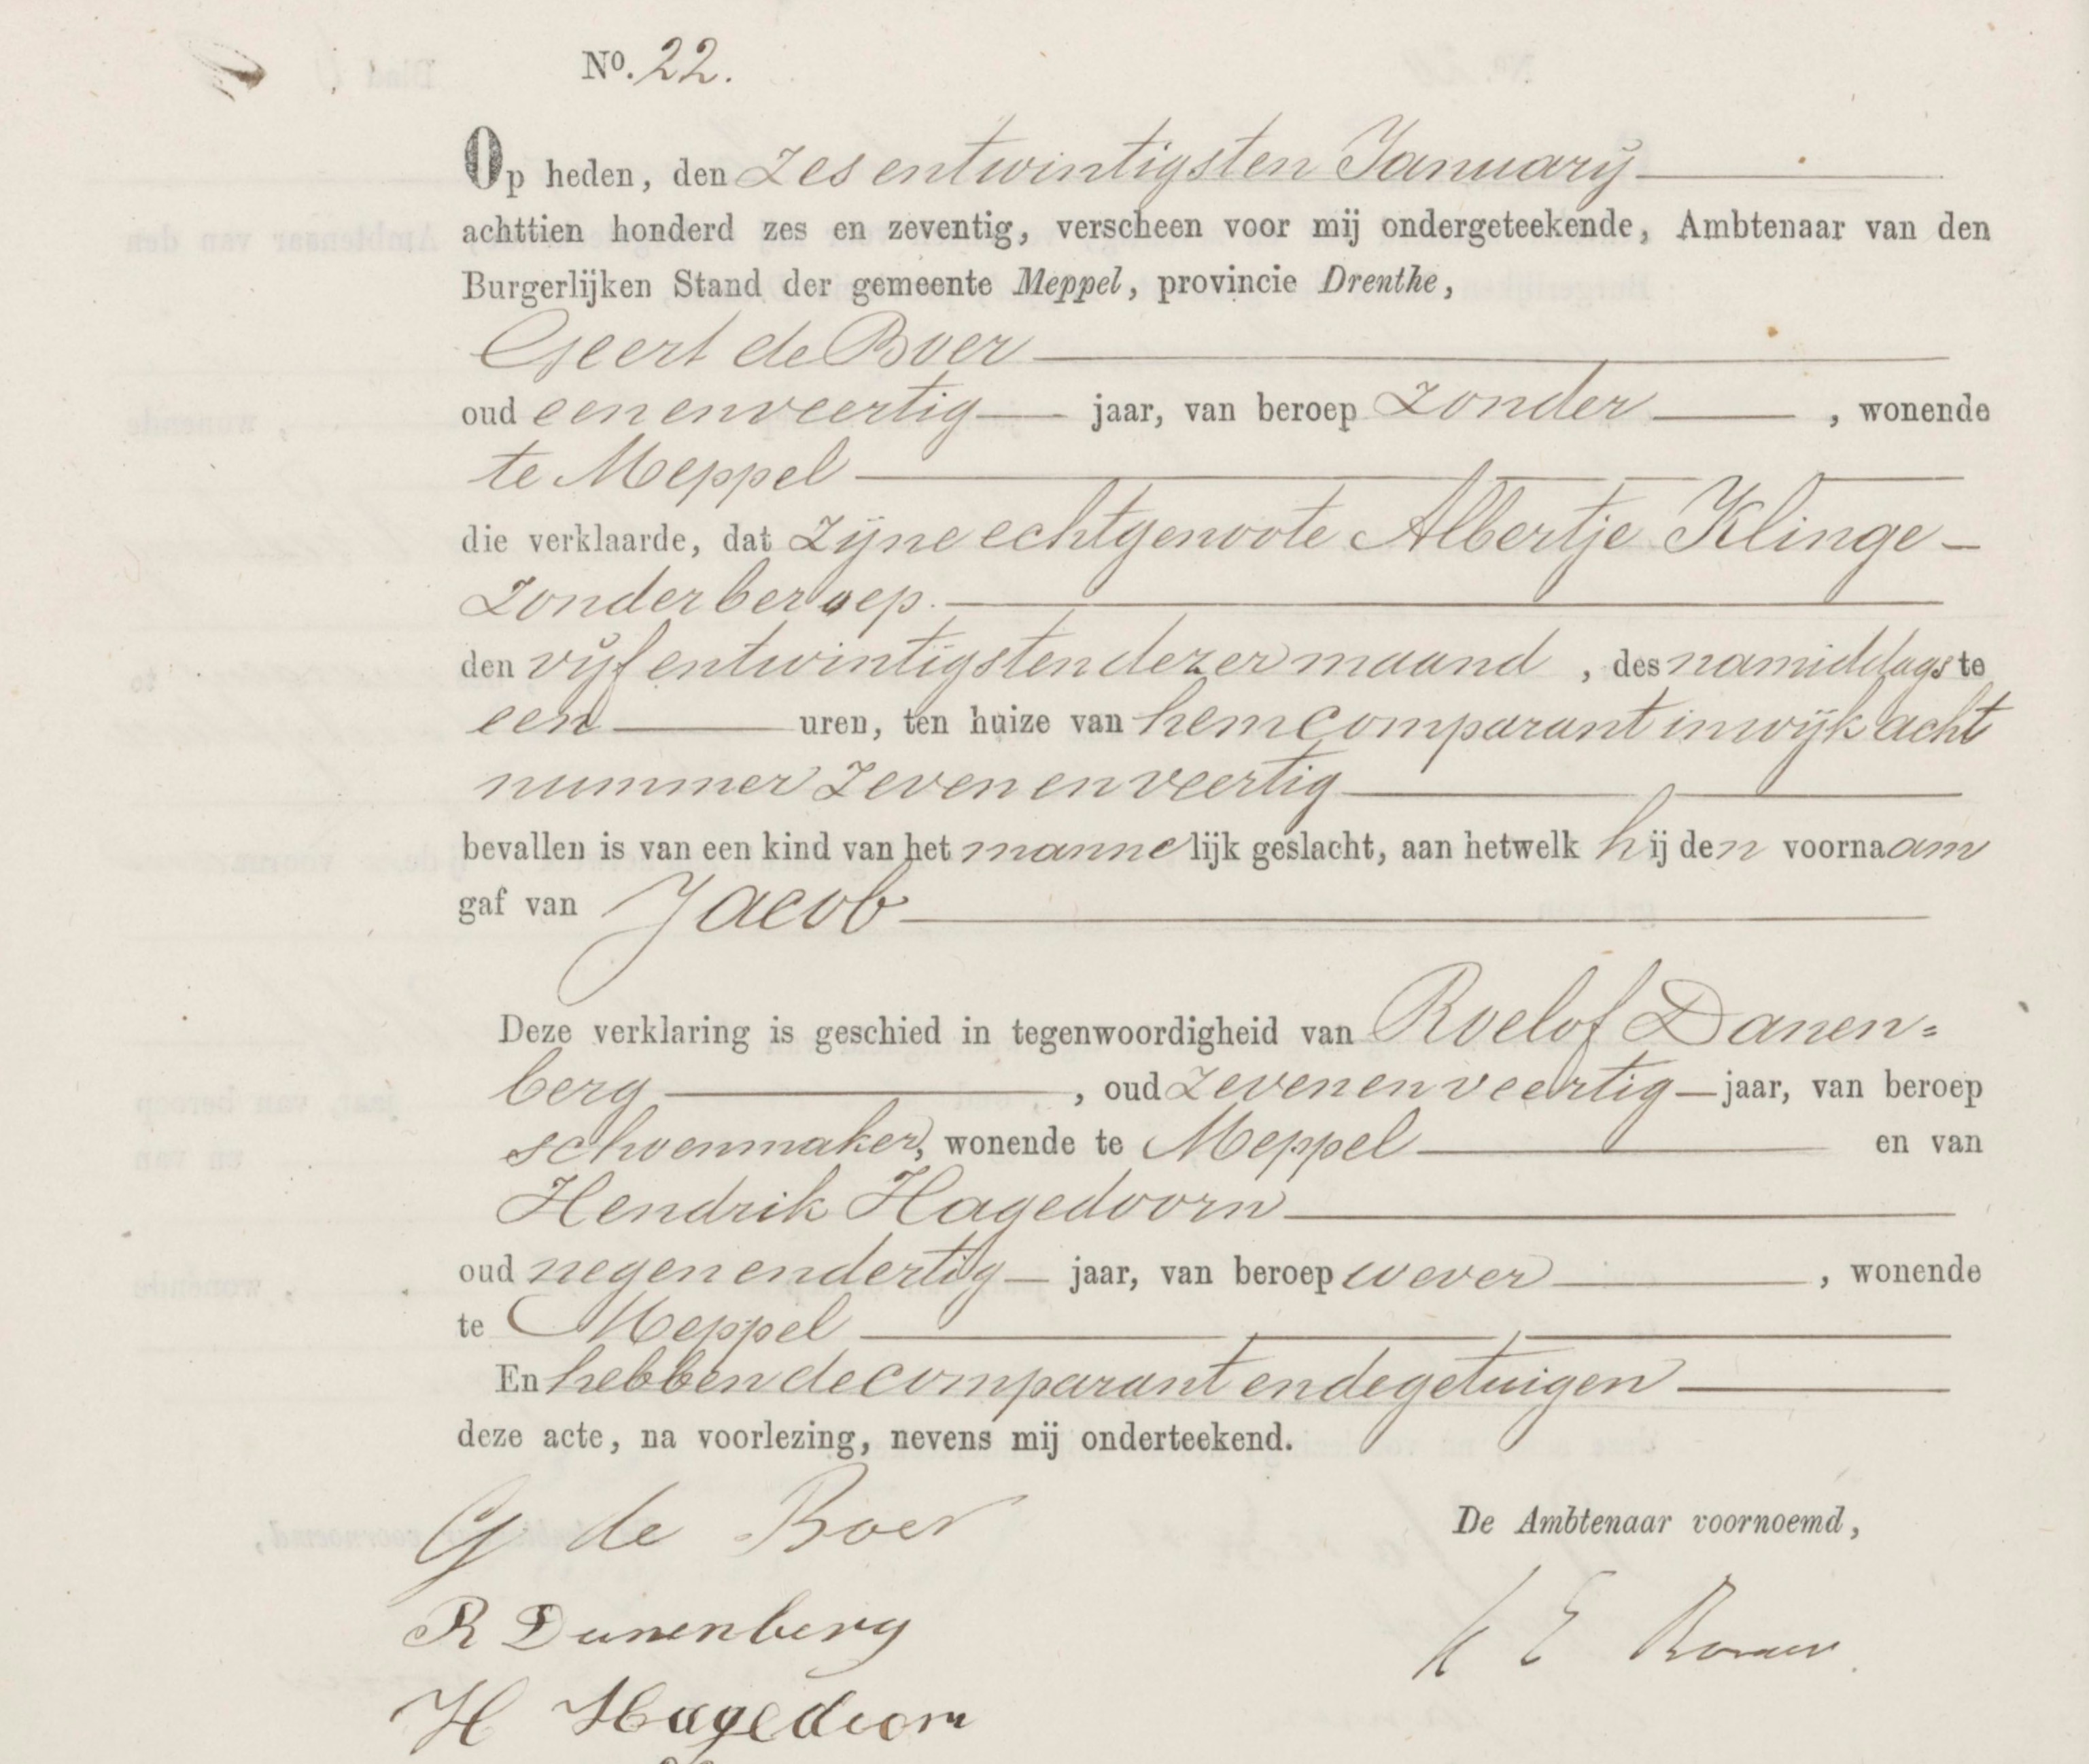 No. 22.
Op heden, den zesentwintigsten January
achttien honderd zes en zeventig, verscheen voor mij ondergeteekende, Ambtenaar van den
Burgerlijken Stand der gemeente Meppel, provincie Drenthe,
Geert de Boer
oud eenenveertig jaar, van beroep zonder, wonende
te Meppel
die verklaarde, dat zijne echtgenoote Albertje Klinge -
zonder beroep.
den vijfentwintigsten dezer maand, des namiddags te
een uren, ten huize van hem comparant in wijk acht
nummer zevenenveertig
bevallen is van een kind van het mannelijk geslacht, aan hetwelk hij den voornaam
gaf van Jacob
Deze verklaring is geschied in tegenwoordigheid van Roelof Danen=
berg, oud zevenenveertig jaar, van beroep
schoenmaker, wonende te Meppel en van
Hendrik Hagedoorn
oud negenendertig jaar, van beroep wever, wonende
te Meppel
En hebben de comparant en de getuigen
deze acte, na voorlezing, nevens mij onderteekend.
G de Boer
De Ambtenaar voornoemd,
R Danenberg
H Hagedoorn